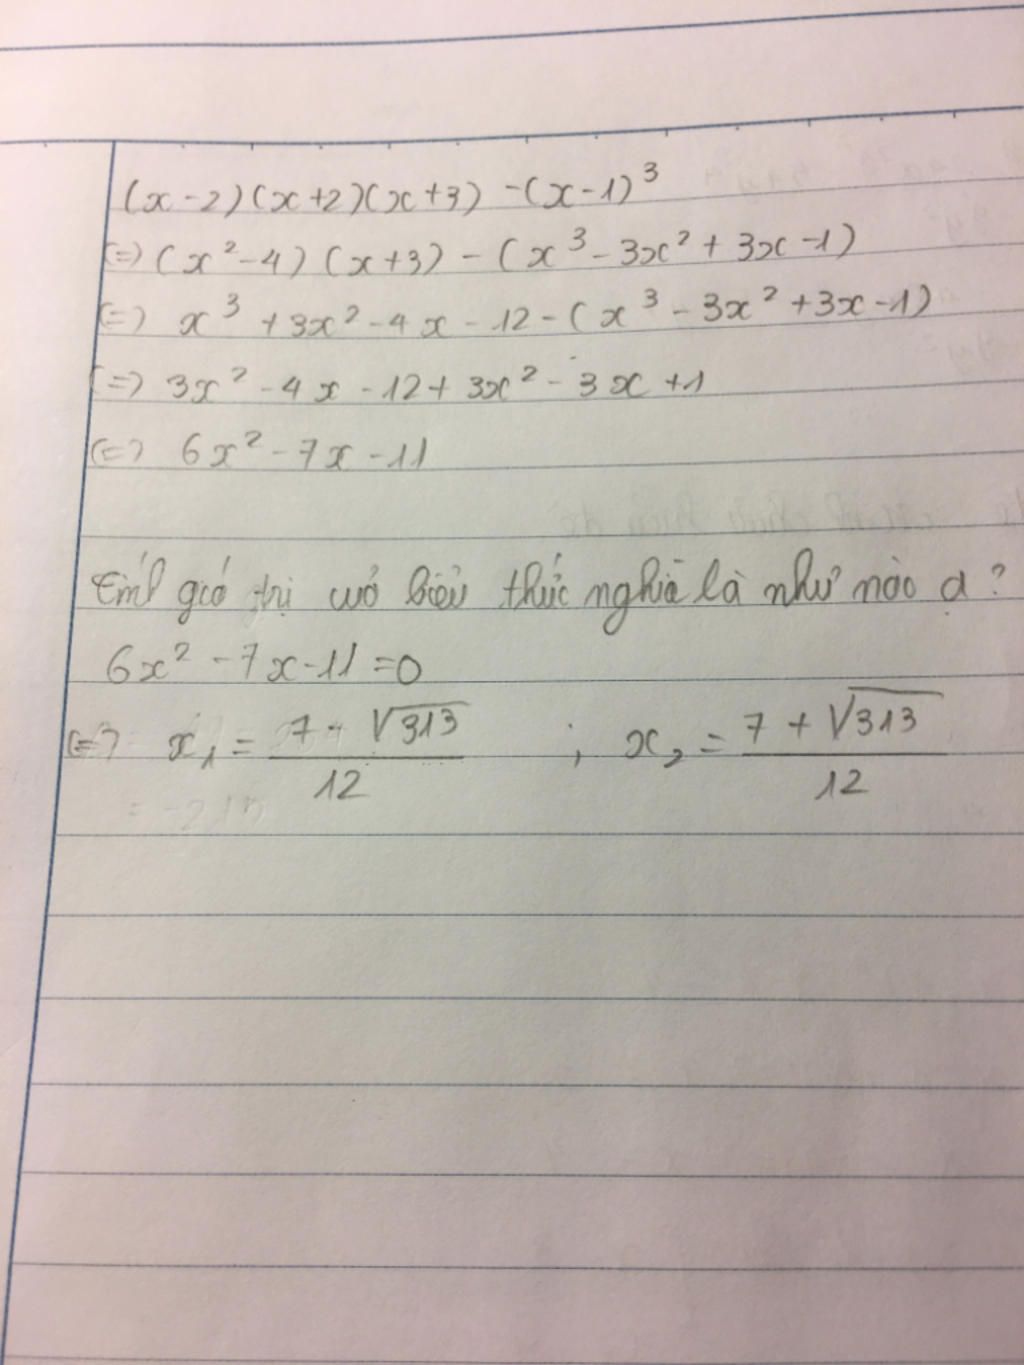 (x-2)(x+2)(x+3) -(x-1)³
(=) (x²-4) (x+3) - (x³- 3x² + 3x -1)
(=) x³ +3x²-4x - 12-(x³ - 3x² +3x-1)
(=) 3x² -4x -12+ 3x²- 3x +1
(=) 6x² -7x -11
tính giá trị củả biểu thức nghĩa là như nào ạ?
6x² -7x-11 =0
(=) x₁ = (7 - √313)/12 ; x₂ = (7 + √313)/12